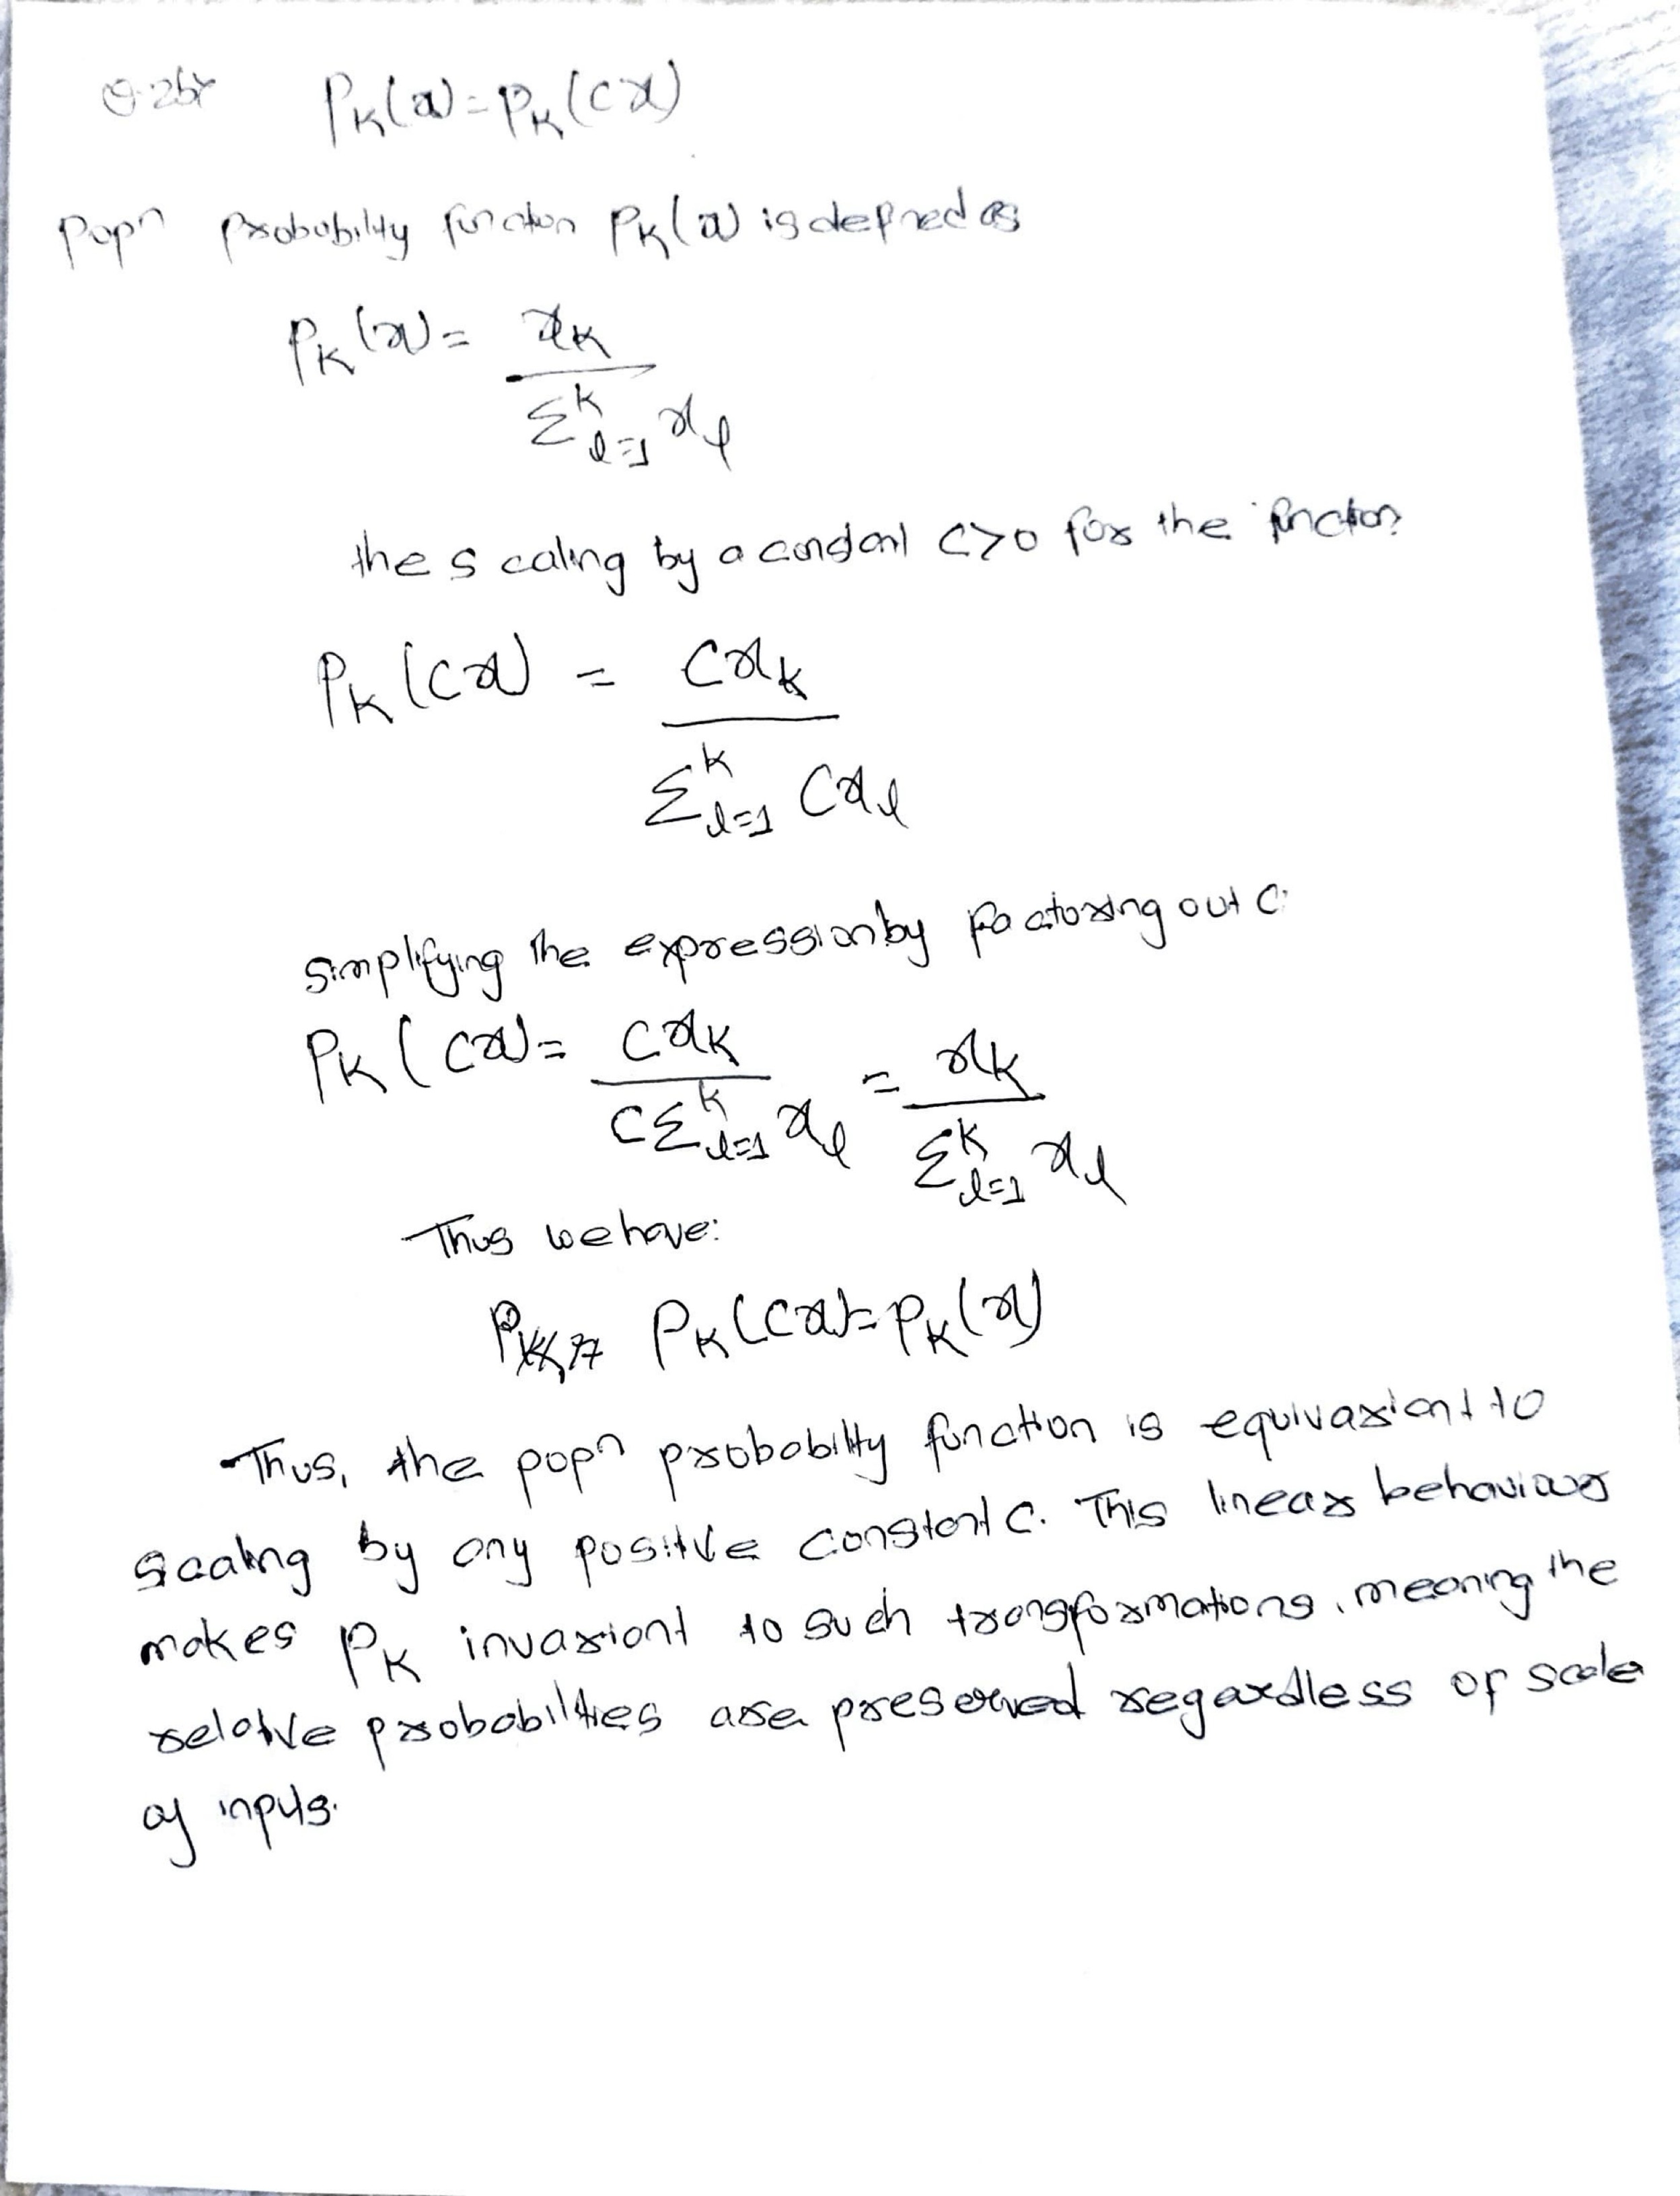 Q.2b) Pk(x) = Pk(cx)
popn probability function Pk(x) is defined as
Pk(x) = xk / Σ^k l=1 xl
the scaling by a constant c>0 for the function
Pk(cx) = cxk / Σ^k l=1 cxl
simplifying the expression by factoring out c:
Pk(cx) = cxk / cΣ^k l=1 xl = xk / Σ^k l=1 xl
Thus we have:
Pk(cx) = Pk(x)
Thus, the popn probability function is equivariant to
scaling by any positive constant c. This linear behaviour
makes Pk invariant to such transformations, meaning the
relative probabilities are preserved regardless of scale
of inputs.